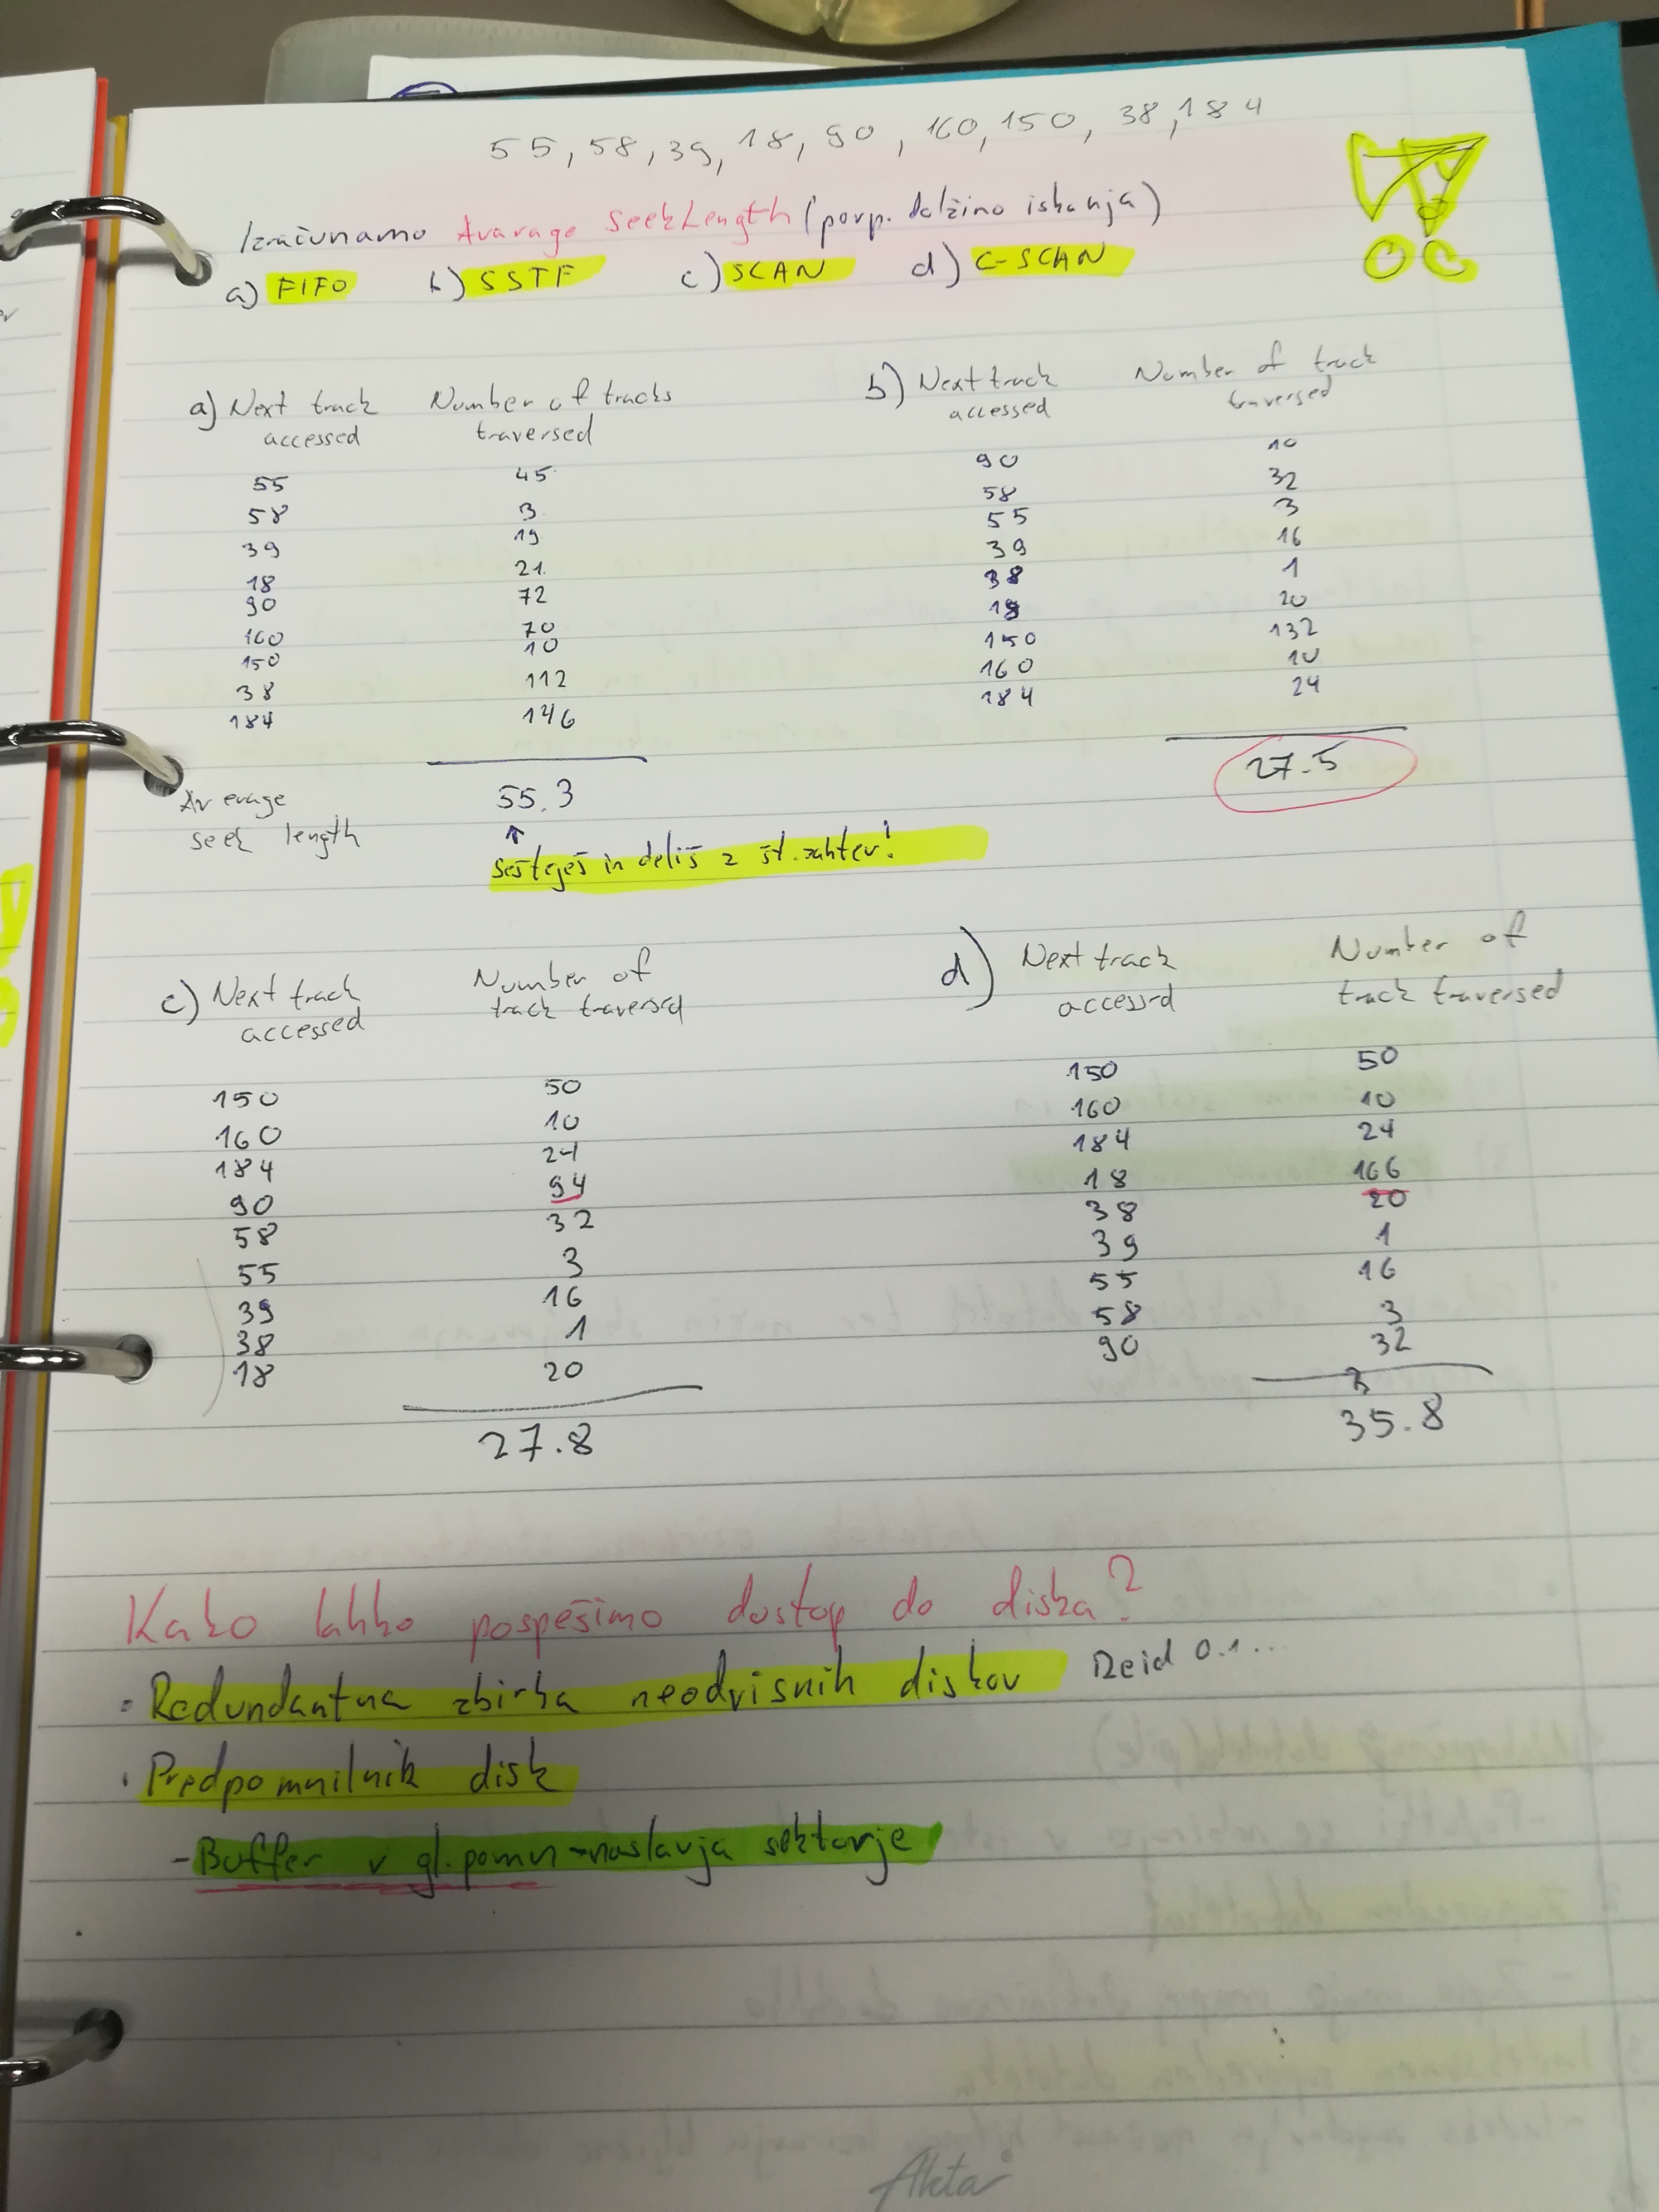 55, 58, 39, 18, 90, 160, 150, 38, 184
Izračunamo Avarage Seek Length (povp. dolžino iskanja)
a) FIFO b) SSTF c) SCAN d) C-SCAN
a) Next track accessed Number of tracks traversed
55 45
58 3
39 19
18 21
90 72
160 70
150 10
38 112
184 146
Average seek length 55.3
sešteješ in deliš z št. zahtev!
b) Next track accessed Number of track traversed
90 10
58 32
55 3
39 16
38 1
18 20
150 132
160 10
184 24
27.5
c) Next track accessed Number of track traversed
150 50
160 10
184 24
90 94
58 32
55 3
39 16
38 1
18 20
27.8
d) Next track accessd Number of track traversed
150 50
160 10
184 24
18 166
38 20
39 1
55 16
58 3
90 32
35.8
Kako lahko pospešimo dostop do diska?
• Redundantna zbirka neodvisnih diskov Reid 0.1...
• Predpomnilnik disk
- Buffer v gl. pomn - naslavja sektorje
Akta